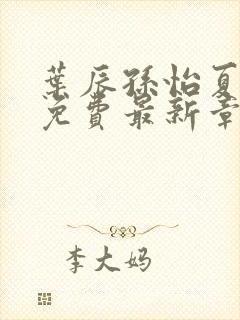 葉辰孫怡夏
免費最新章
李大妈